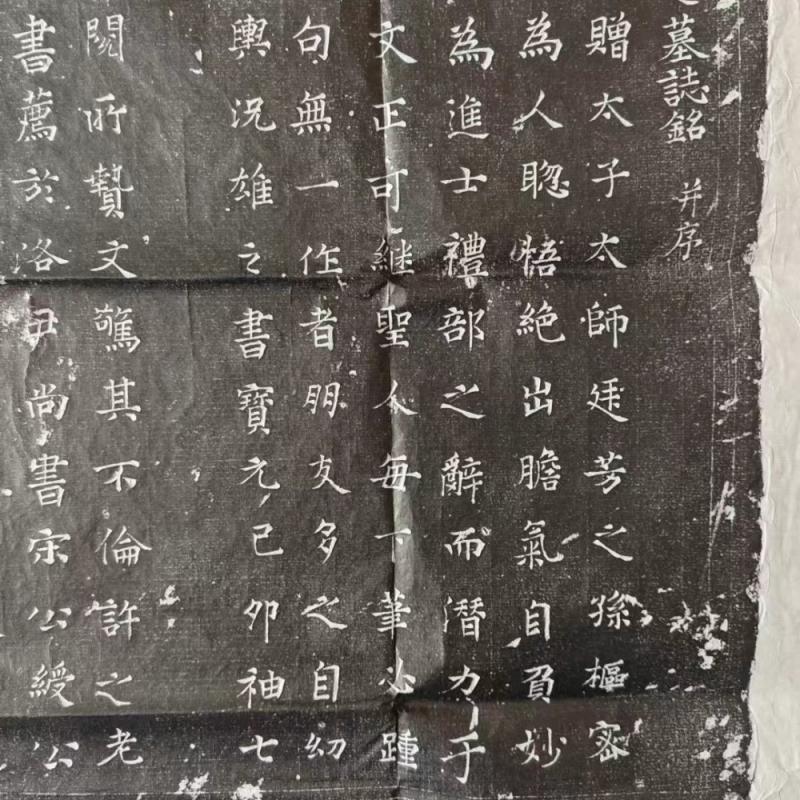 墓誌銘 并序
贈太子太師廷芳之孫樞密
為人聡悟絶出膽氣自負妙
為進士禮部之辭而潛力于
文正可継聖人每下筆必踵
句無一作者朋友多之自幼
輿況雄之書寶元己卯袖七
閱所贄文驚其不倫許之老
書薦於洛尹尚書宋公綬公